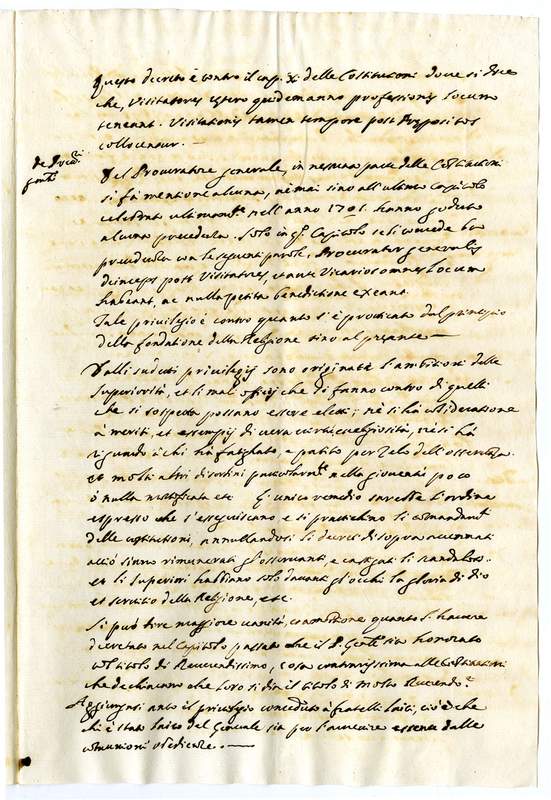 Questo decreto è contro il cap. XI. delle Costitutioni dove si dice
che, Visitatores extero quidem anno professionis locum
teneant. Visitationis tamen tempore post Prepositos
collocentur.
Del Procuratore generale, in nessuna parte delle Costitutioni
si fà mentione alcuna, nè mai sino all'ultimo Capitolo
celebrato ultimamte nell'anno 1701. hanno goduto
alcuna precedenza. Solo in q.to Capitolo se li concede la
precedenza con le seguenti parole, Procurator generalis
deinceps post Visitatores, et ante Vicarios omnes locum
habeant, ac nulla petita benedictione exeant.
Tale privilegio è contro quanto s'è praticato dal principio
della fondatione della Religione sino al presente —
Dalli sudetti privilegij sono originate l'ambitioni delle
Superiorità, et li mali officij che si fanno contro di quelli
che si sospetta possano essere eletti; nè si hà consideratione
à meriti, et essempij di vera virtù, e religiosità, nè si hà
riguardo à chi hà fatigato, e patito per zelo dell'osservanza.
et molti altri disordini particolarmte nella gioventù poco
ò nulla mortificata etc. L'unico remedio sarebbe l'ordine
espresso che s'esseguiscano, e si pratichino li comandamti
delle costitutioni, annullandosi li decreti di sopra accennati
acciò siano rimunerati gl'osservanti, e castigati li scandalosi.
et li Superiori habbiano solo davanti gl'occhi la gloria di Dio
et servitio della Religione, etc.
Si può dire maggiore vanità, et ambitione quanto l'havere
decretato nel Capitolo passato che il P. Gen.le sia honorato
col titolo di Reverendissimo, cosa contrarissima alle Costitutioni
che dechiarano che loro si dia il titolo di Molto Reverendo.
Aggiungasi anco il privilegio conceduto à fratelli laici, cioè che
chi è stato laico del Generale sia per l'avenire essente dalle
comunioni obedienze. —